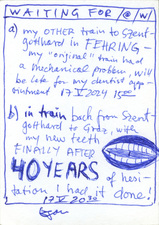 WAITING FOR @/W/
a) my OTHER train to Szent-
gotthard in FEHRING –
my "original" train had
a mechanical problem, will
be late for my dentist app-
ointment 17 V 2024 15:00
b) in train back from Szent-
gotthard to Graz, with
my new teeth
FINALLY AFTER
40 YEARS
of hesi-
tation I had it done!
17 V 20:30